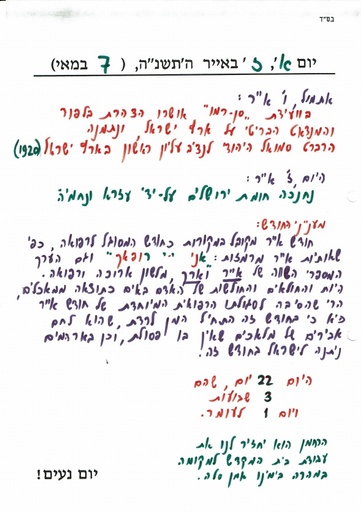 בס״ד
יום א׳, ז׳ באייר ה׳תשנ״ה, ( 7 במאי)
אתמול, ו׳ אייר:
בוועידת "סן-רמו" אושרו הצהרת בלפור
והמנדאט הבריטי על ארץ ישראל, ונתמנה
הרברט סמואל היהודי לנציב עליון ראשון בארץ ישראל (1920)
היום, ז׳ אייר:
נחנכה חומת ירושלים על-ידי עזרא ונחמיה
מענין החודש:
חודש אייר מקובל במקורות כחודש המסוגל לרפואה, כפי
שאותיות אייר מרמזות: "אני י-י רופאך" וגם הערך
המספרי השווה של אייר וארך, מלשון ארוכה ורפואה.
היות והחולאים והחולשות של האדם באים כתוצאה ממאכלים,
הרי שהסיבה לסגולתו הרפואית המיוחדת של חודש אייר
היא כי בחודש זה התחיל המן לרדת, שהוא לחם
אבירים של מלאכים שאין בו פסולת, וכן בארהמים
ניתנה לישראל בחודש זה.
היום 22 יום, שהם
3 שבועות
ויום 1 לעומר.
הרחמן הוא יחזיר לנו את
עבודת בית המקדש למקומה
במהרה בימינו אמן סלה.
יום נעים!